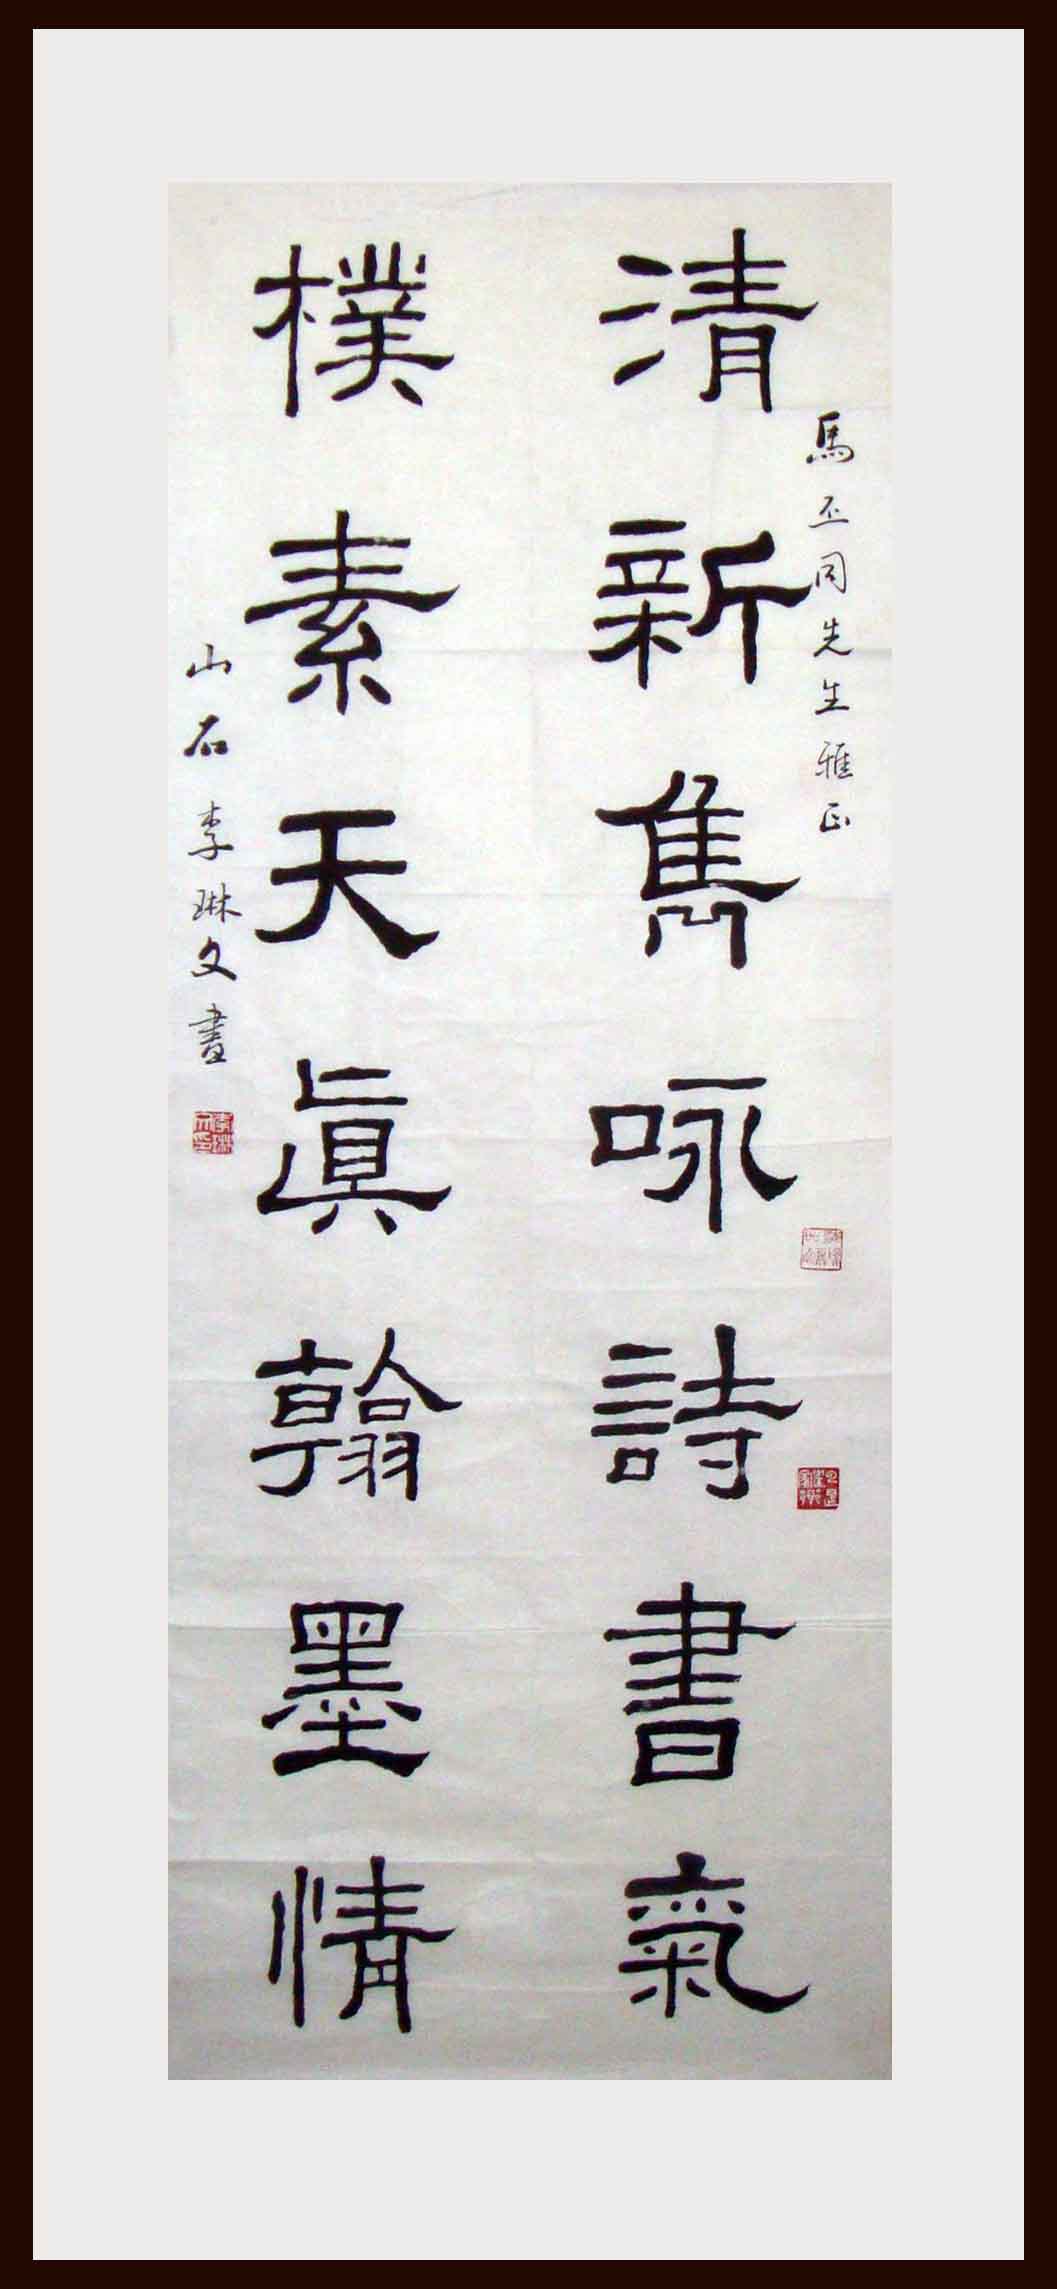 清新雋咏詩書氣
馬丕同先生雅正
樸素天眞翰墨情
山石李琳文書